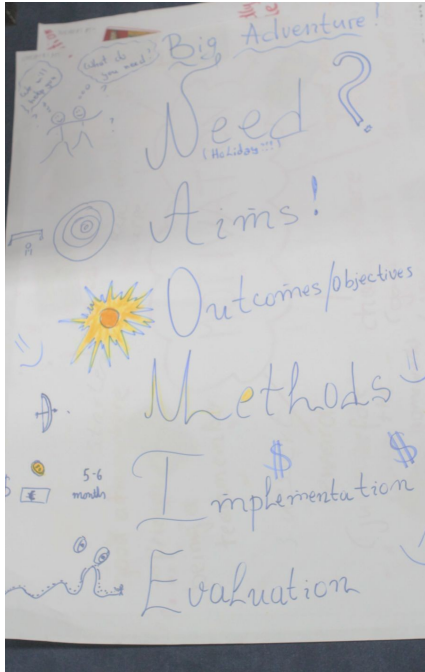 Big Adventure!
What do you need?
Need ?
(Holidays!!!)
Aims!
Outcomes/Objectives
Methods
$ $
5-6
month
€
Implementation
Evaluation